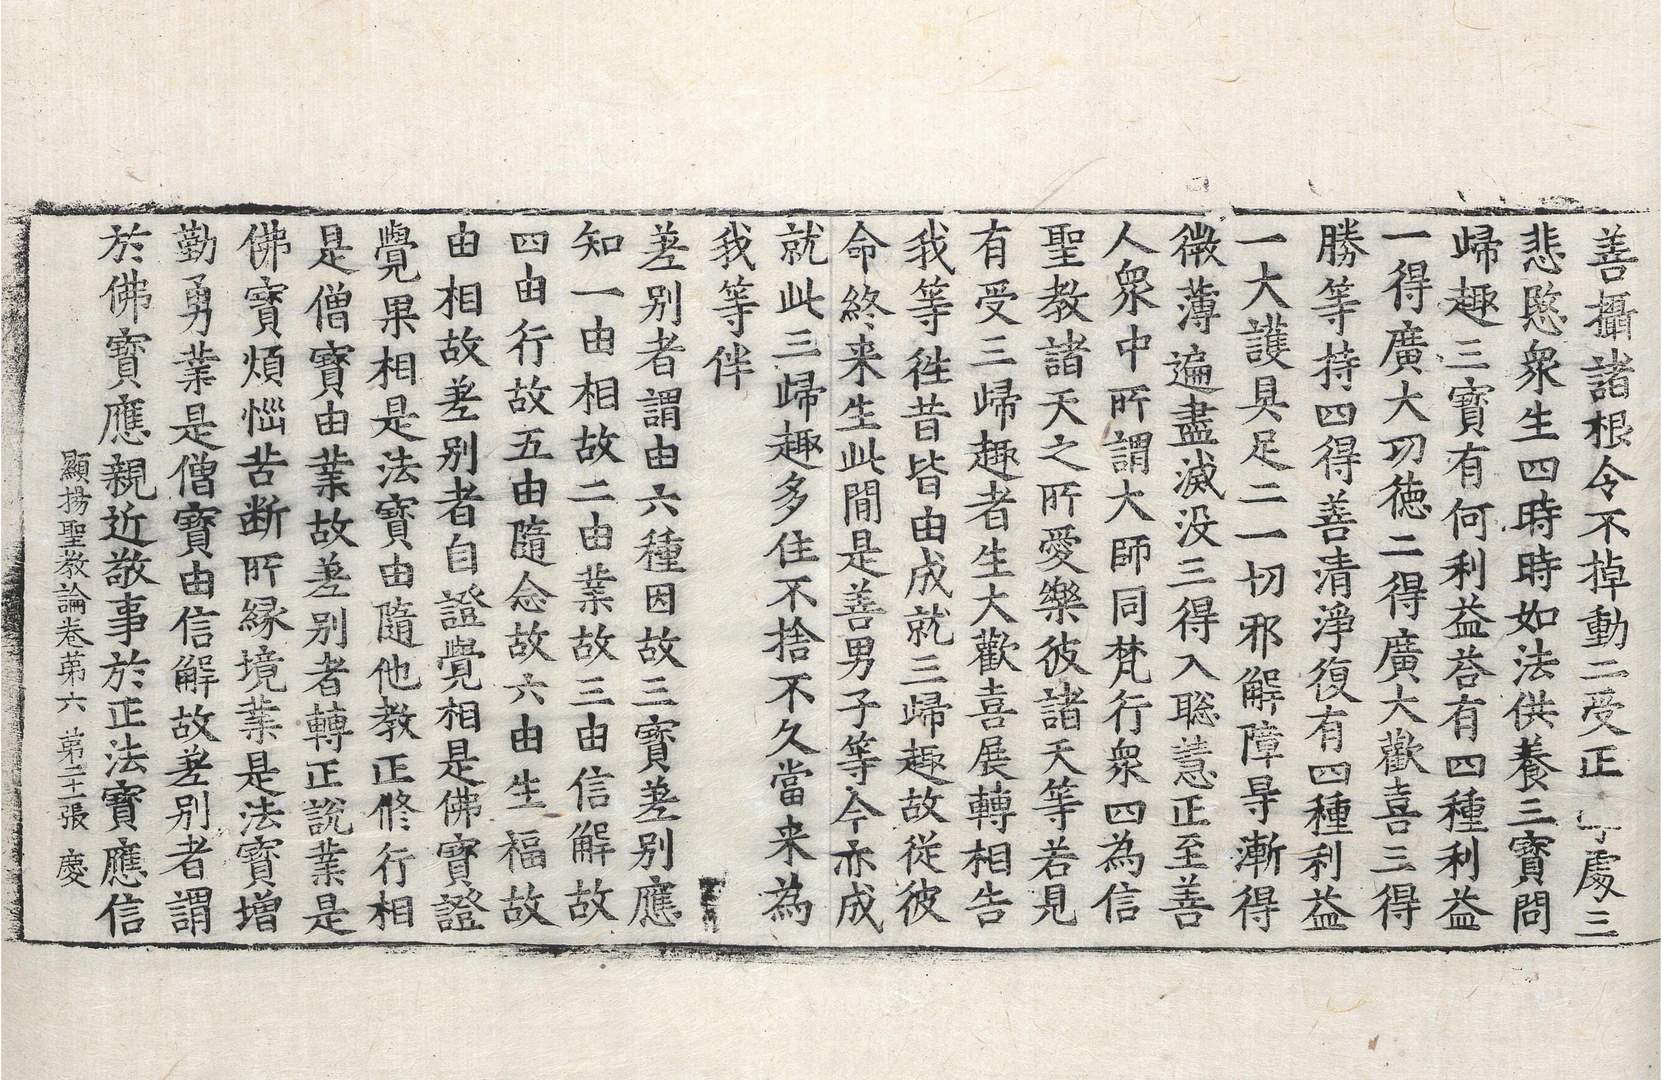 善攝諸根令不掉動二受正處三
悲愍衆生四時時如法供養三寶問
歸趣三寶有何利益荅有四種利益
一得廣大功德二得廣大歡喜三得
勝等持四得善清淨復有四種利益
一大護具足二一切邪解障㝵漸得
微薄遍盡滅没三得入聡慧正至善
人衆中所謂大師同梵行衆四為信
聖教諸天之所愛樂彼諸天等若見
有受三歸趣者生大歡喜展轉相告
我等徃昔皆由成就三歸趣故從彼
命終来生此間是善男子等今亦成
就此三歸趣多住不捨不久當来為
我等伴
差别者謂由六種因故三寶差别應
知一由相故二由業故三由信解故
四由行故五由隨念故六由生福故
由相故差别者自證覺相是佛寶證
覺果相是法寶由隨他教正修行相
是僧寶由業故差别者轉正説業是
佛寶煩惱苦断所縁境業是法寶增
勤勇業是僧寶由信解故差别者謂
於佛寶應親近敬事於正法寶應信
顯揚聖教論卷苐六 苐二十張 慶